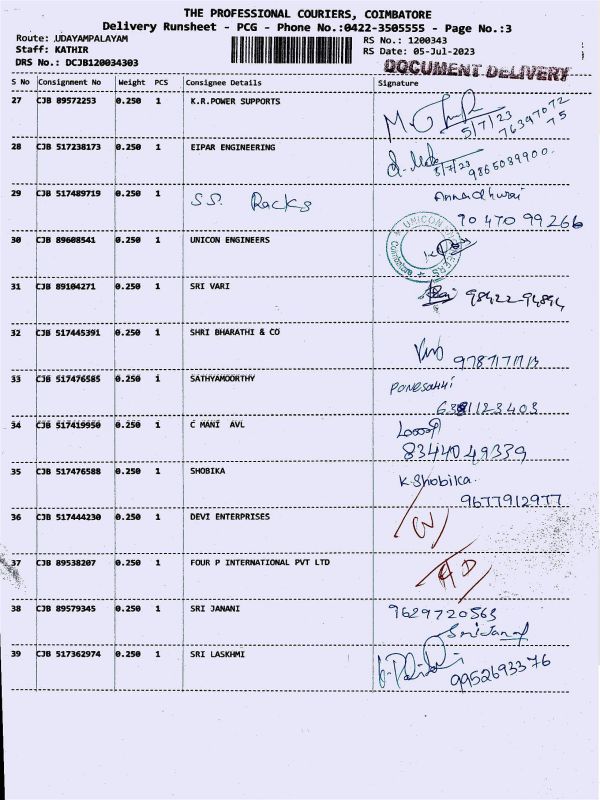 THE PROFESSIONAL COURIERS, COIMBATORE
Delivery Runsheet - PCG - Phone No.:0422-3505555 - Page No.:3
Route: UDAYAMPALAYAM RS No.: 1200343
Staff: KATHIR RS Date: 05-Jul-2023
DRS No.: DCJB120034303
DOCUMENT DELIVERY
S No Consignment No Weight PCS Consignee Details Signature
27 CJB 89572253 0.250 1 K.R.POWER SUPPORTS
5/7/23 76397072
75
28 CJB 517238173 0.250 1 EIPAR ENGINEERING
5/7/23 9865089900.
29 CJB 517489719 0.250 1 S.S. Racks Annadhurai
90 470 99266
30 CJB 89608541 0.250 1 UNICON ENGINEERS
UNICON ENGINEERS Coimbatore
31 CJB 89104271 0.250 1 SRI VARI 98422-94894
32 CJB 517445391 0.250 1 SHRI BHARATHI & CO
33 CJB 517476585 0.250 1 SATHYAMOORTHY
6381123403
34 CJB 517419950 0.250 1 C MANI AVL
8344049339
35 CJB 517476588 0.250 1 SHOBIKA K.Shobika.
9677912977
36 CJB 517444230 0.250 1 DEVI ENTERPRISES
37 CJB 89538207 0.250 1 FOUR P INTERNATIONAL PVT LTD
38 CJB 89579345 0.250 1 SRI JANANI 9629720563
39 CJB 517362974 0.250 1 SRI LASKHMI
9952693376